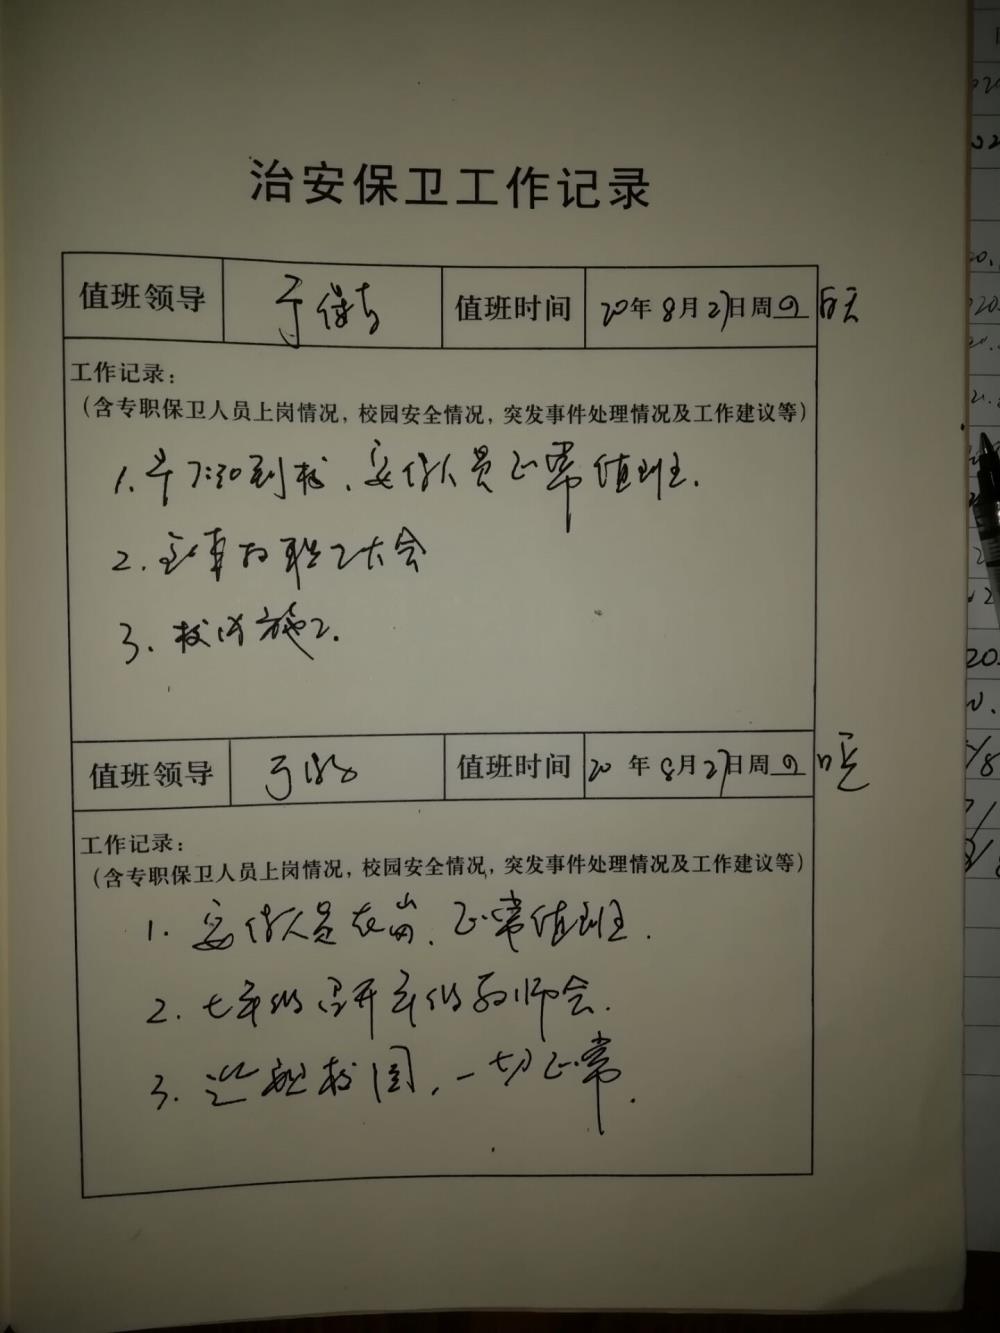 治安保卫工作记录
值班领导 于保 值班时间 20年8月27日周四 白天
工作记录：
（含专职保卫人员上岗情况，校园安全情况，突发事件处理情况及工作建议等）
1.早7:30到校、安保人员正常值班.
2.全体教职工大会
3.校内施工.
值班领导 于 值班时间 20年8月27日周四 晚
工作记录：
（含专职保卫人员上岗情况，校园安全情况，突发事件处理情况及工作建议等）
1.安保人员在岗、正常值班.
2.七年级召开年级教师会.
3.巡视校园，一切正常.